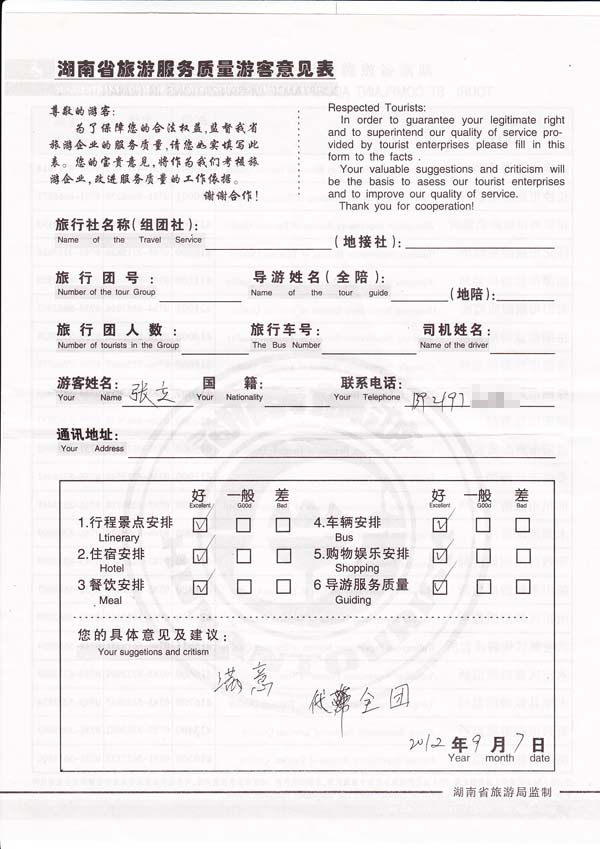 湖南省旅游服务质量游客意见表
尊敬的游客：
为了保障您的合法权益，监督我省
旅游企业的服务质量，请您如实填写此
表。您的宝贵意见，将作为我们考核旅
游企业，改进服务质量的工作依据。
谢谢合作！
Respected Tourists:
In order to guarantee your legitimate right
and to superintend our quality of service pro-
vided by tourist enterprises please fill in this
form to the facts .
Your valuable suggestions and criticism will
be the basis to asess our tourist enterprises
and to improve our quality of service.
Thank you for cooperation!
旅行社名称（组团社）： （地接社）：
Name of the Travel Service
旅行团号： 导游姓名（全陪）： （地陪）：
Number of the tour Group Name of the tour guide
旅行团人数： 旅行车号： 司机姓名：
Number of tourists in the Group The Bus Number Name of the driver
游客姓名： 张立 国籍： 联系电话：
Your Name Your Nationality Your Telephone
通讯地址：
Your Address
好 一般 差 好 一般 差
Excellent G00d Bad Excellent G00d Bad
1.行程景点安排 4.车辆安排
Ltinerary Bus
2.住宿安排 5.购物娱乐安排
Hotel Shopping
3 餐饮安排 6 导游服务质量
Meal Guiding
您的具体意见及建议：
Your suggetions and critism
满意
代 全团
2012 年 9 月 7 日
Year month date
湖南省旅游局监制